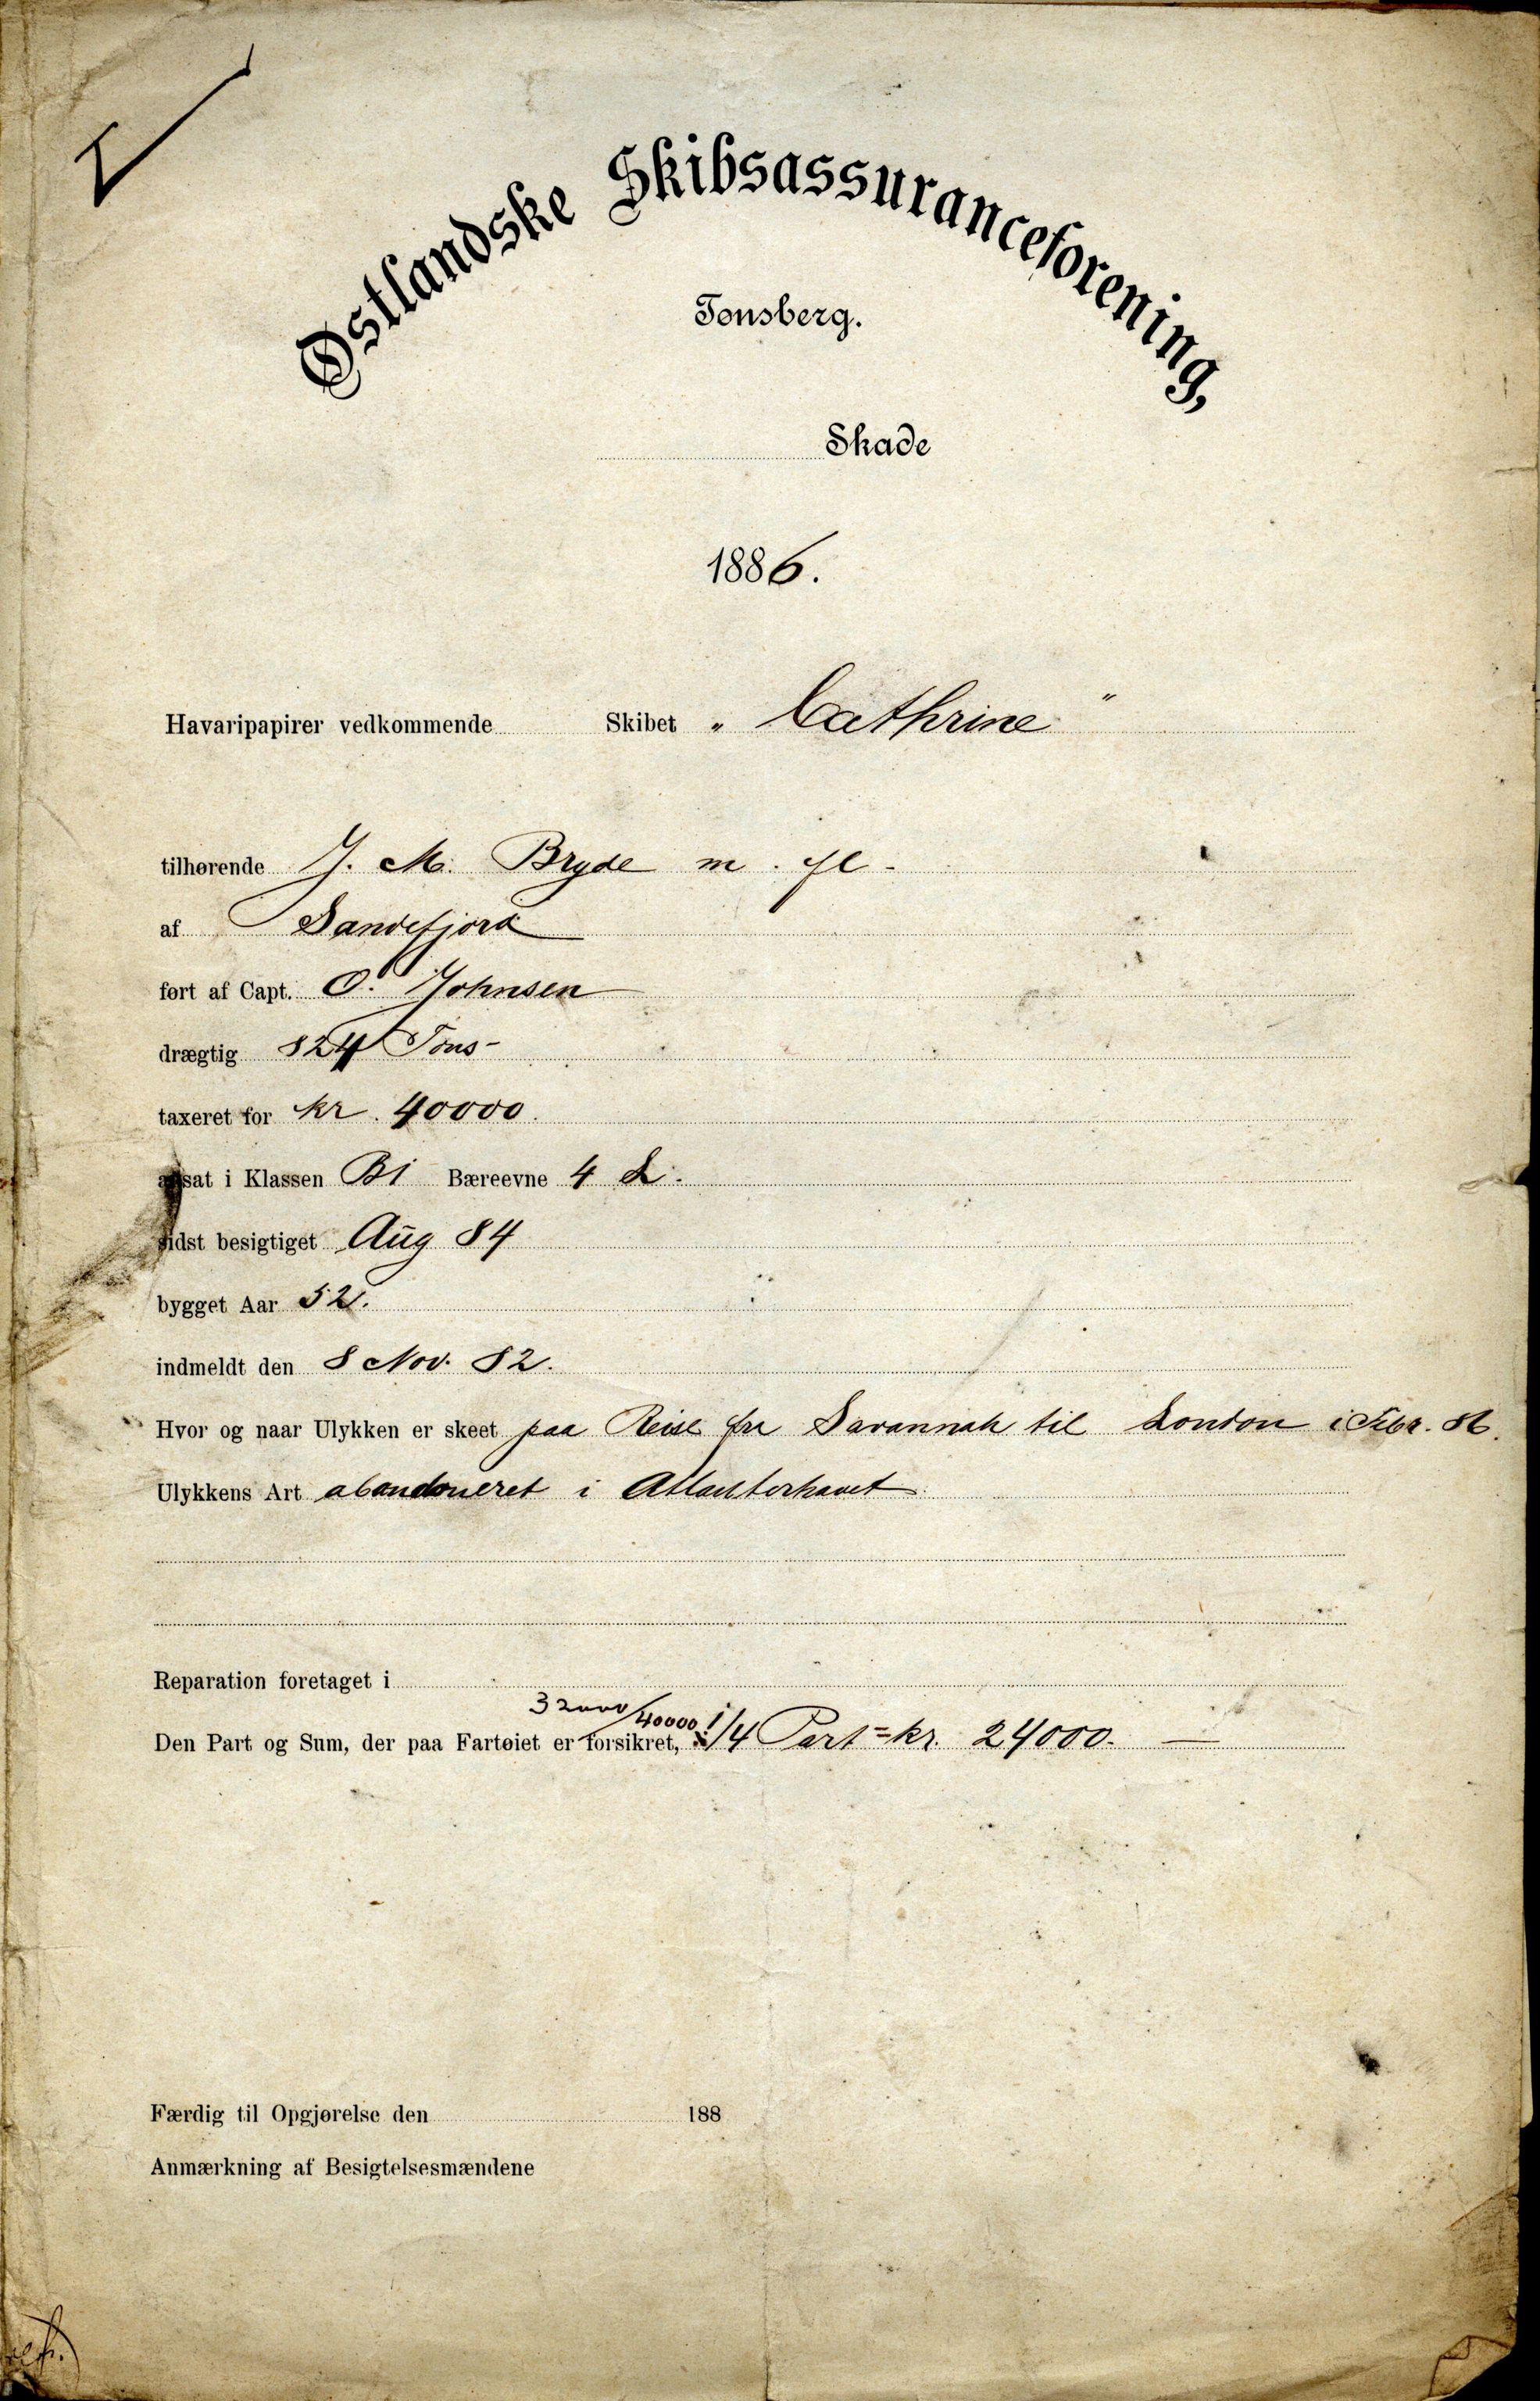 Østlandske Skibsassuranceforening,
Tønsberg.
Skade
1886.
Havaripapirer vedkommende Skibet „ Cathrine "
tilhørende J. M. Bryde m. fl -
af Sandefjord
ført af Capt. O. Johnsen
drægtig 824 Tons -
taxeret for kr. 40000.
ansat i Klassen B1 Bæreevne 4 L.
sidst besigtiget Aug 84
bygget Aar 52.
indmeldt den 8 Nov. 82.
Hvor og naar Ulykken er skeet paa Reise fra Savannah til London i Febr. 86.
Ulykkens Art abandoneret i Atlanterhavet
Reparation foretaget i
32000/40000
Den Part og Sum, der paa Fartøiet er forsikret, /4 Part = kr. 24000. —
Færdig til Opgjørelse den 188
Anmærkning af Besigtelsesmændene